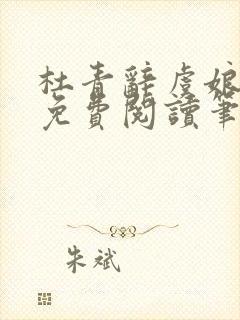 杜青辭虞娘
免費閱讀筆
朱斌